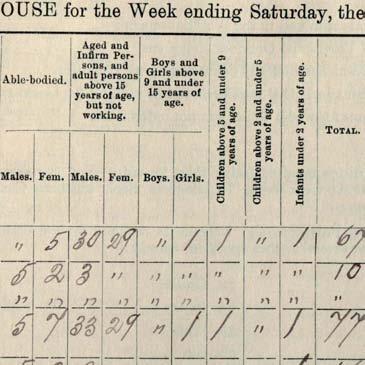 OUSE for the Week ending Saturday, the
Able-bodied.
Aged and
Infirm Per-
sons, and
adult persons
above 15
years of age,
but not
working.
Boys and
Girls above
9 and under
15 years of
age.
Children above 5 and under 9
years of age.
Children above 2 and under 5
years of age.
Infants under 2 years of age.
TOTAL.
Males. Fem. Males. Fem. Boys. Girls.
" 5 30 29 " 1 1 " 1 67
5 2 3 " " " " " " 10
" " " " " " " " " "
5 7 33 29 " 1 1 " 1 77